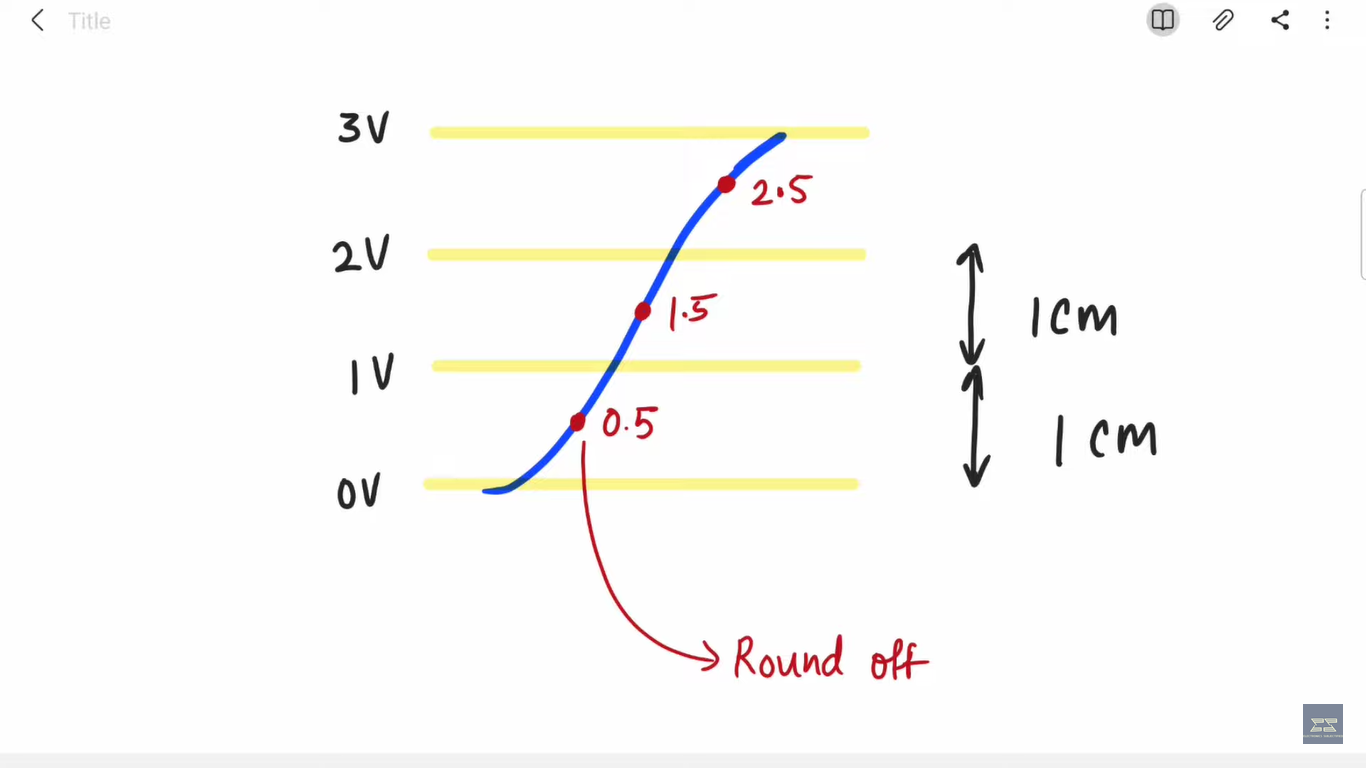 Title
3V
2.5
2V
1.5
1cm
1V
0.5
1cm
0V
Round off